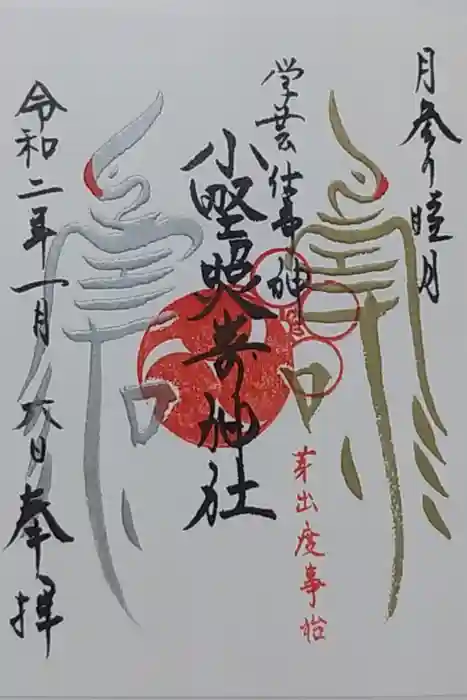 月参り睦月
学芸仕事神
小野照嵜神社
芽出度事始
令和二年一月六日奉拝